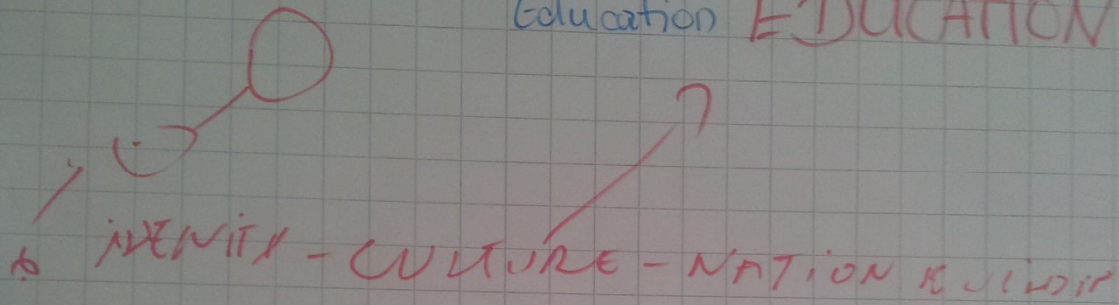 Education EDUCATION
iDENiTY - CULTURE - NATiON